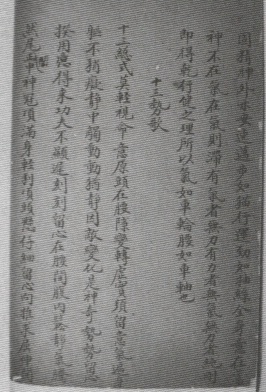 固精神外示安逸邁步如猫行運動如抽絲全身意在
神不在氣在氣則滯有氣者無力有力者無氣無力者純剛
即得乾行健之理所以氣如車輪腰如車軸也
十三勢歌
十三總式莫輕視命意原頭在腰隙變轉虛實須留意氣遍身
軀不稍癡靜中觸動動猶静因敵變化是神奇勢勢留
揆用意得来功夫不顯遲刻刻留心在腰間腹內鬆静氣騰
然尾中神冠頂滿身輕利頂頭懸仔細留心向推求屈伸